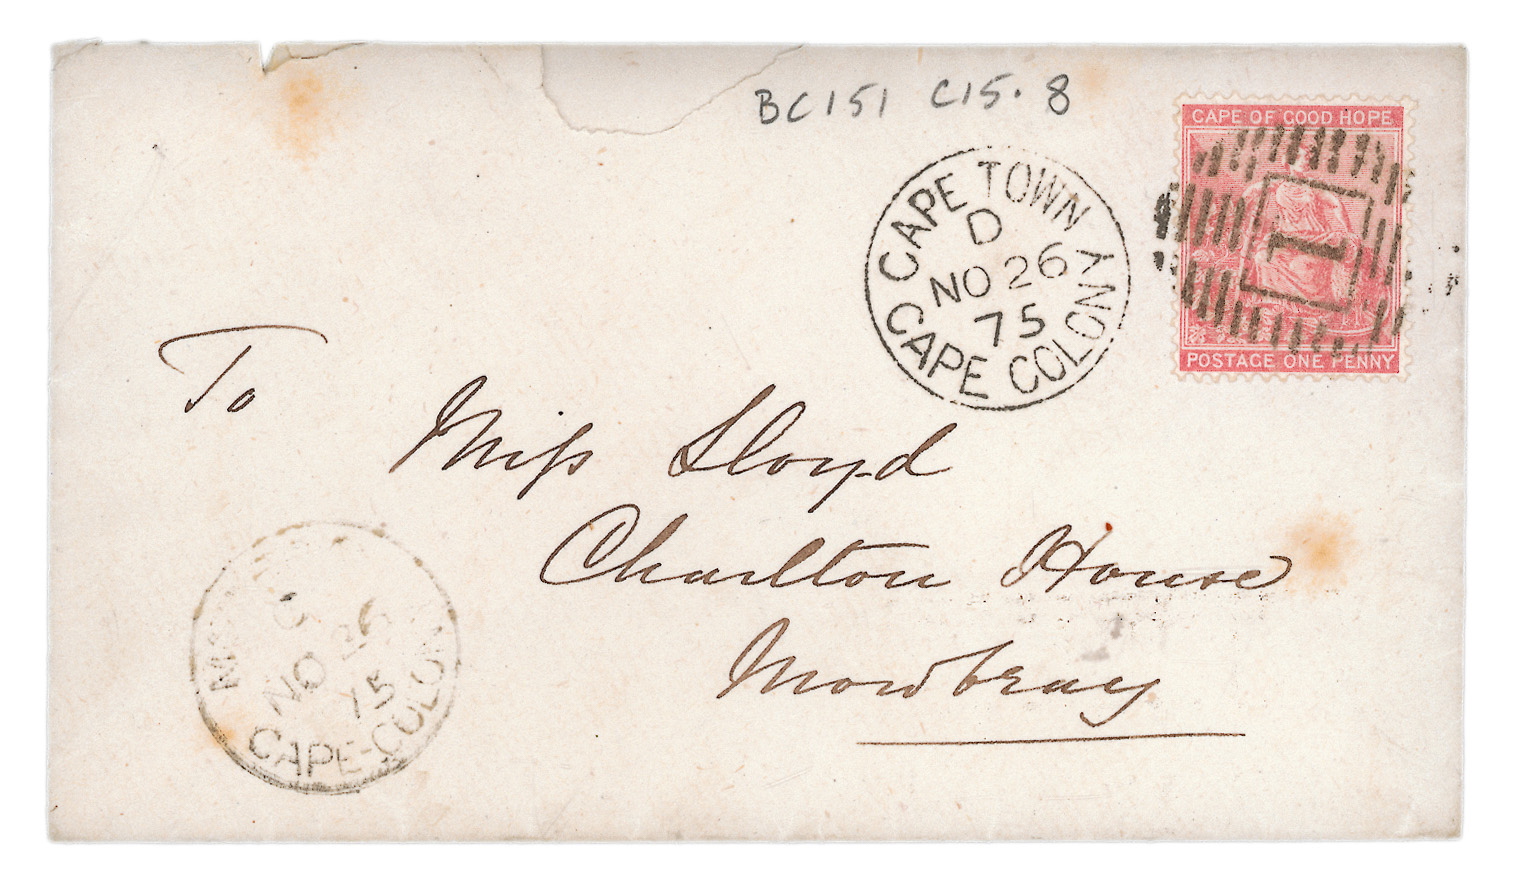 BC151 C15.8
CAPE OF GOOD HOPE
1
POSTAGE ONE PENNY
CAPE TOWN
D
NO 26
75
CAPE COLONY
To
Miss Lloyd
Charlton House
Mowbray
NO 26
75
CAPE-COLONY